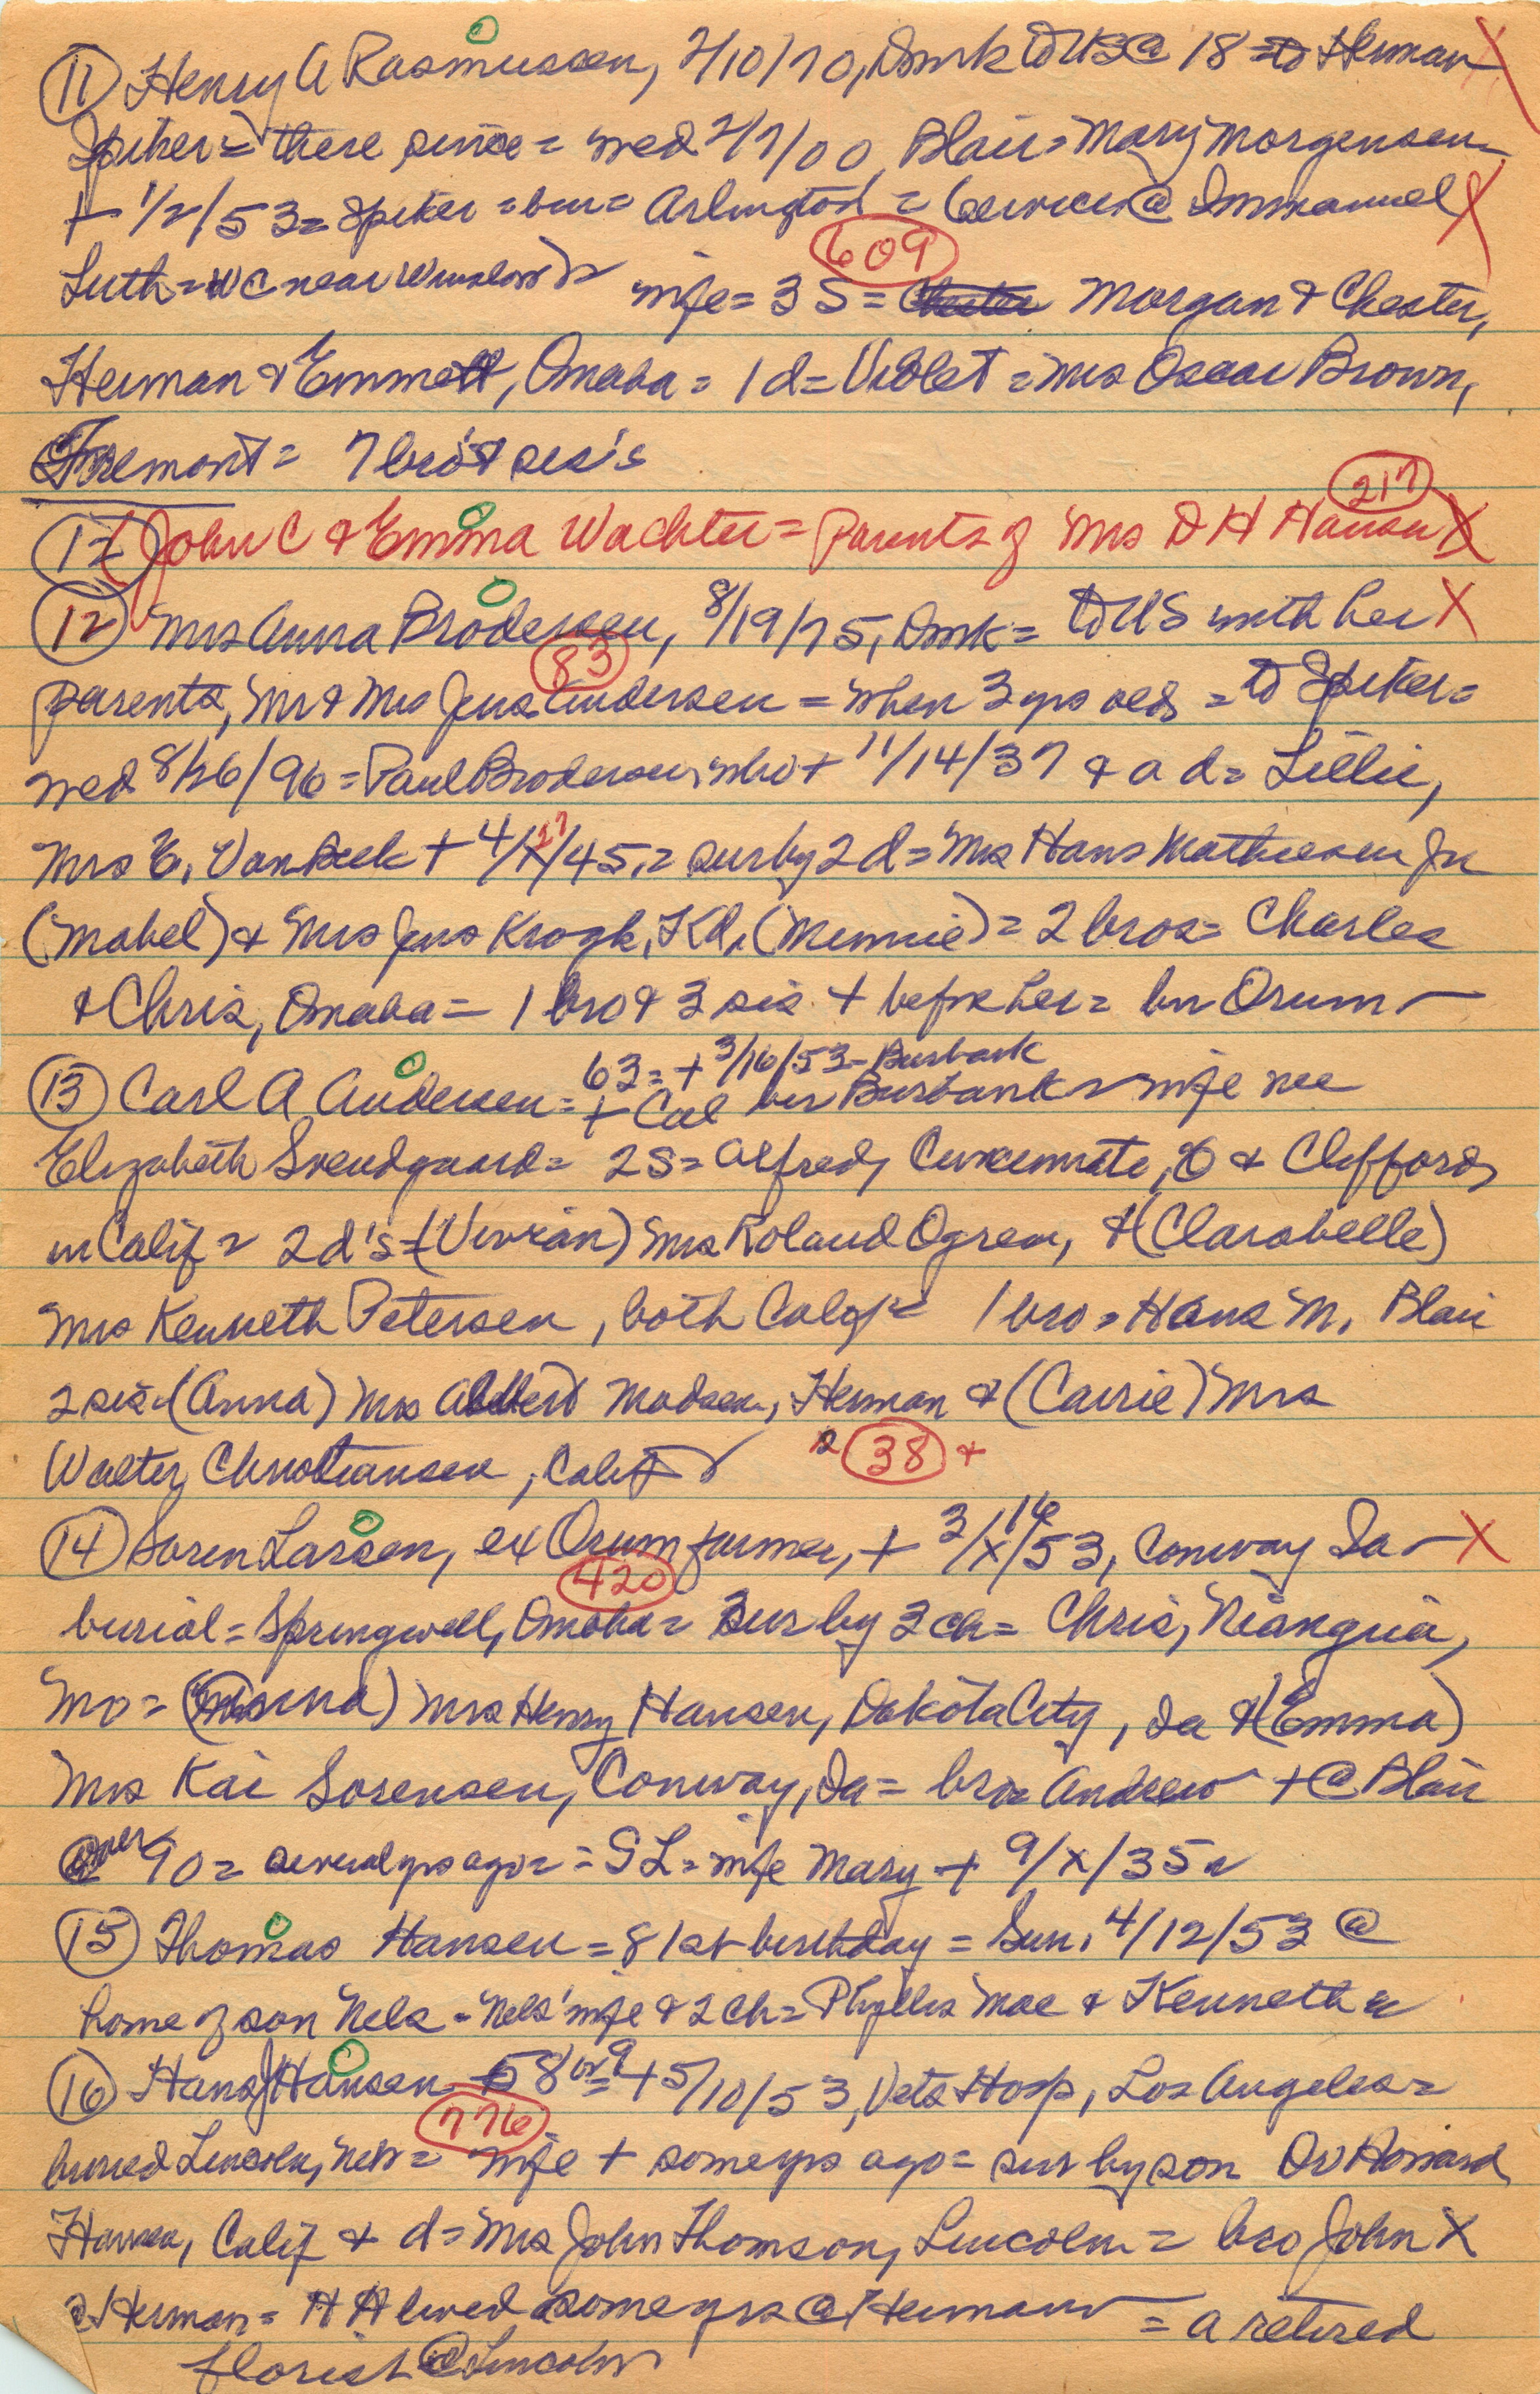 (11) Henry A Rasmussen, 2/10/70, Dmrk to US @ 18 = to Herman X
Spiker = there since = wed 2/7/00 Blair = Mary Morgensen
+ 1/2/53 = Spiker = bur = Arlington = Services @ Immanuel X
609
Luth = WC near Winslow = wife = 3 S = Morgan & Chester,
Herman & Emmett, Omaha = 1 d = Violet = Mrs Oscar Brown,
Fremont = 7 bro's & sis's
217
(12) (John C & Emma Wachter = Parents of Mrs D H Hansen X
(12) Mrs Anna Brodersen, 8/19/75, Dmk = to US with her X
83
parents, Mr & Mrs Jens Andersen = when 3 yrs old = to Spiker =
wed 8/26/96 = Paul Brodersen, who + 11/14/37 & a d = Lillie,
Mrs E. VanBeek + 4/27/45 = sur by 2 d = Mrs Hans Mathiesen Jr
(Mabel) & Mrs Jens Krogh, Kd, (Minnie) = 2 bros = Charles
& Chris, Omaha = 1 bro & 3 sis + befre her = bur Orum
63 = + 3/16/53 - Burbank
(13) Carl A Andersen = + Cal bur Burbank = wife nee
Elizabeth Svendgaard = 2 S = Alfred, Cincinnati, O & Clifford,
in Calif = 2 d's = (Vivian) Mrs Roland Ogren, & (Clarabelle)
Mrs Kenneth Petersen, both Calif = 1 bro = Hans M, Blair
2 sis = (Anna) Mrs Albert Madsen, Herman & (Carrie) Mrs
Walter Christiansen, Calif 38 +
(14) Soren Larsen, ex Orum farmer, + 3/16/53, Conway Ia X
420
burial = Springwell, Omaha = sur by 3 ch = Chris, Niangua,
Mo = (Anna) Mrs Henry Hansen, Dakota City, Ia & (Emma)
Mrs Kai Sorensen, Conway, Ia = bro Andrew + @ Blair
@ over 90 = several yrs ago = = SL = wife Mary + 9/x/35
(15) Thomas Hansen = 81st birthday = Sun, 4/12/53 @
home of son Nels = Nels' wife & 2 ch = Phyllis Mae & Kenneth
(16) Hans J Hansen 58 or 9 = + 5/10/53, Vets Hosp, Los Angeles =
776
buried Lincoln, Neb = wife + some yrs ago = sur by son Dr Howard
Hansen, Calif & d = Mrs John Thomson, Lincoln = bro John X
@ Herman = H H lived some yrs @ Herman = a retired
florist @ Lincoln